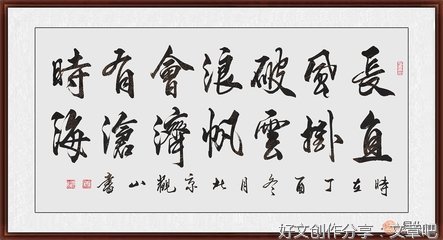 長風破浪會有時
直掛雲帆濟滄海
時在丁酉冬月北京觀山書
好文创作分享：文章吧